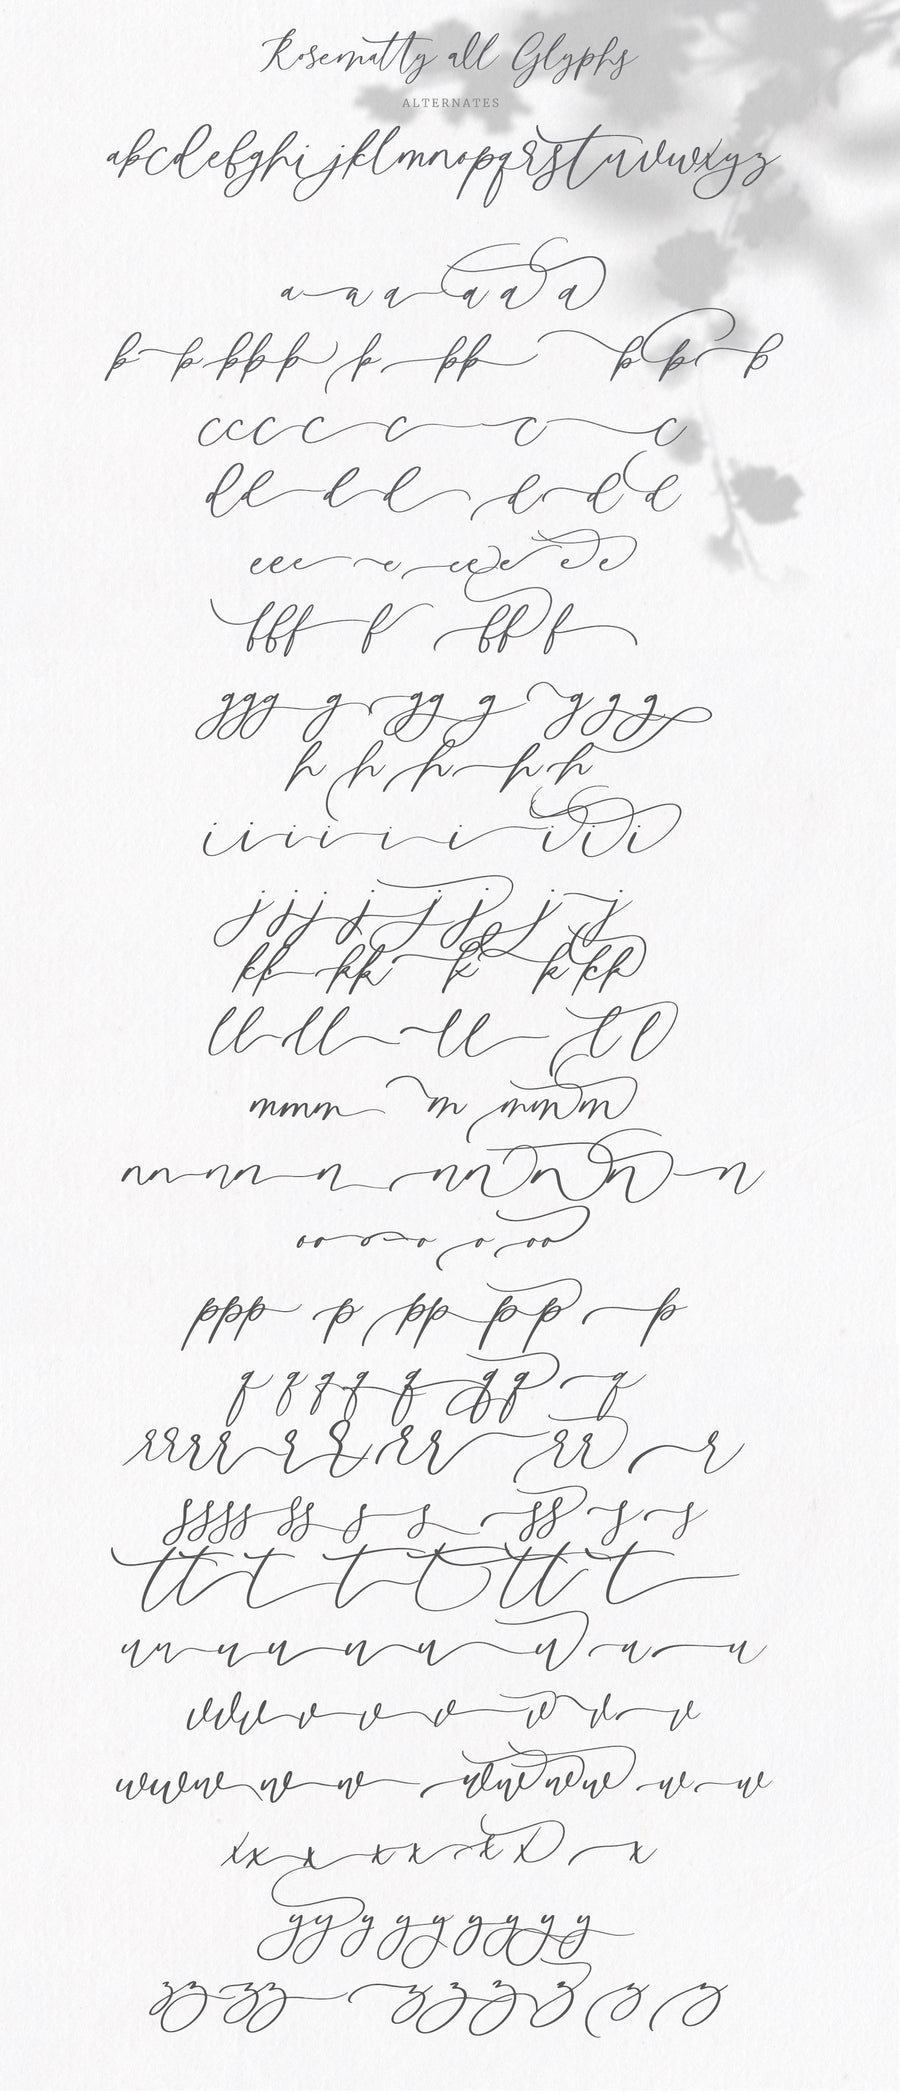 Rosematty all Glyphs
ALTERNATES
abcdefghijklmnopqrstuvwxyz
a a a a a a
b b b b b b b b b b b
c c c c c c c
d d d d d d d
e e e e e e e e e
f f f f f f f
g g g g g g g g g g
h h h h h
i i i i i i i i i
j j j j j j j j
k k k k k k k k
l l l l l l l l
m m m m m m m
n n n n n n n n n n
o o o o o o o
p p p p p p p p
q q q q q q q q
r r r r r r r r r r r
s s s s s s s s s s s s
t t t t t t t t
u u u u u u u u u
v v v v v v v v v
w w w w w w w w w w w
x x x x x x x x
y y y y y y y y y
z z z z z z z z z z